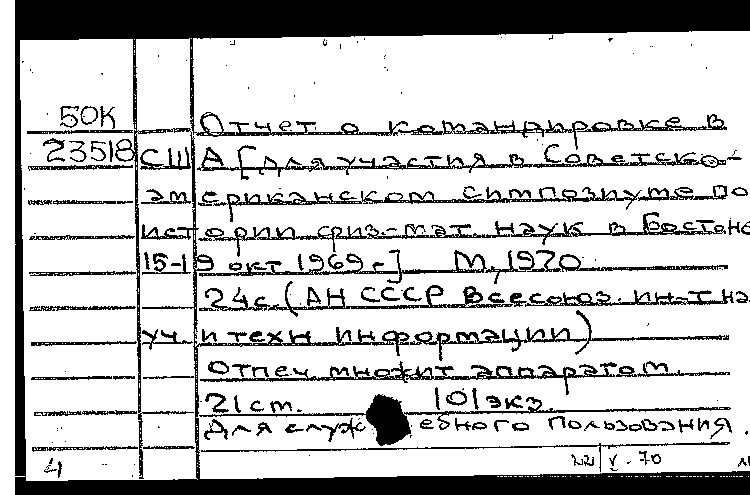 50К Отчет о командировке в
23518 США [для участия в Советско-
американском симпозиуме по
истории физ.-мат. наук в Бостоне
15-19 окт. 1969г.] М., 1970
24с. (АН СССР Всесоюз. ин-т на
уч. и техн информации)
Отпеч. множит аппаратом.
21 см. 101 экз.
Для служебного пользования.
4 V-70